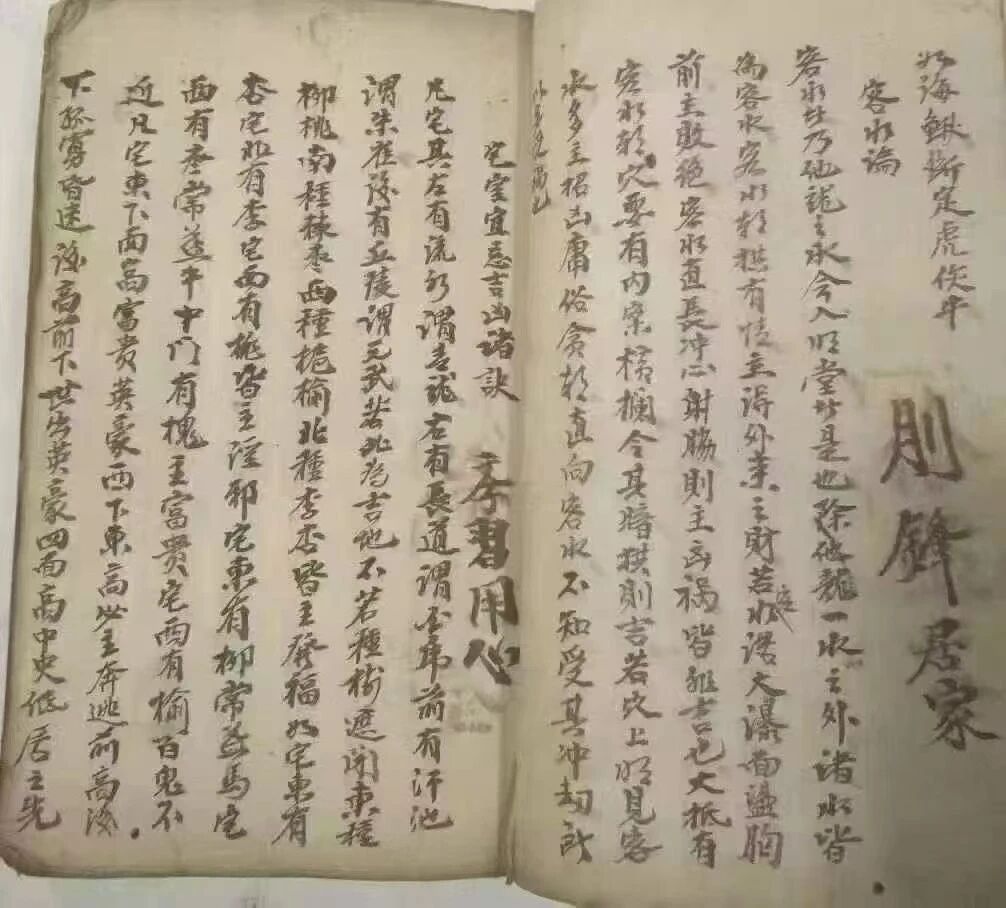 如海鰍斷定虎伏牛
則鋒居家
客水論
客水者乃他龍之水今入明堂者是也除依龍一水之外諸水皆
為客水客水朝拱有情主得外来之財若水浩大瀑面盪胸
前主敗絕客水直長冲心射脇則主凶禍皆非吉也大抵有
客水朝穴要有内案橫攔令其暗拱則吉若穴上明見客
水多主招凶庸俗貪朝直向客水不知受其冲劫所
宅室宜忌吉凶諸訣
李習用心
凡宅其左有流水謂青龍右有長道謂白虎前有汙池
謂朱雀後有丘陵謂元武若此為吉地不若種樹遮閉東種
柳桃南種棘棗西種梔榆北種李杏皆主發福如宅東有
杏宅北有李宅西有桃皆主淫邪宅東有柳常益馬宅
西有棗常益牛中门有槐主富貴宅西有榆百鬼不
近凡宅東下西高富貴英豪西下東高必主奔逃前高後
下孤寡昏迷後高前下世出英豪四面高中央低居之先